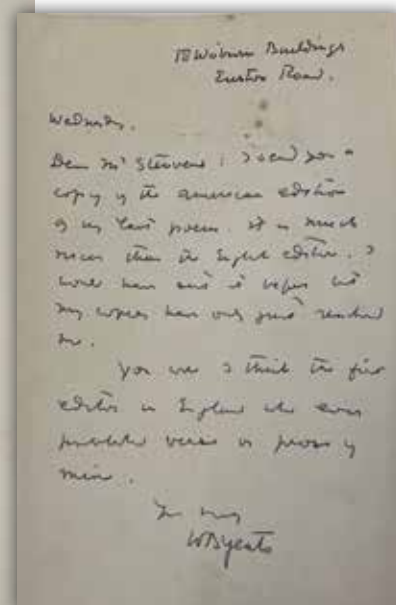 18 Woburn Buildings
Euston Road.
Wednesday.
Dear Mr Stevens: I send you a
copy of the american edition
of my last poem. It is much
nicer than the English edition. I
would have sent it before but
my copies have only just reached
me.
You were I think the first
editor in England who ever
published verse or prose of
mine.
Yrs
WB Yeats